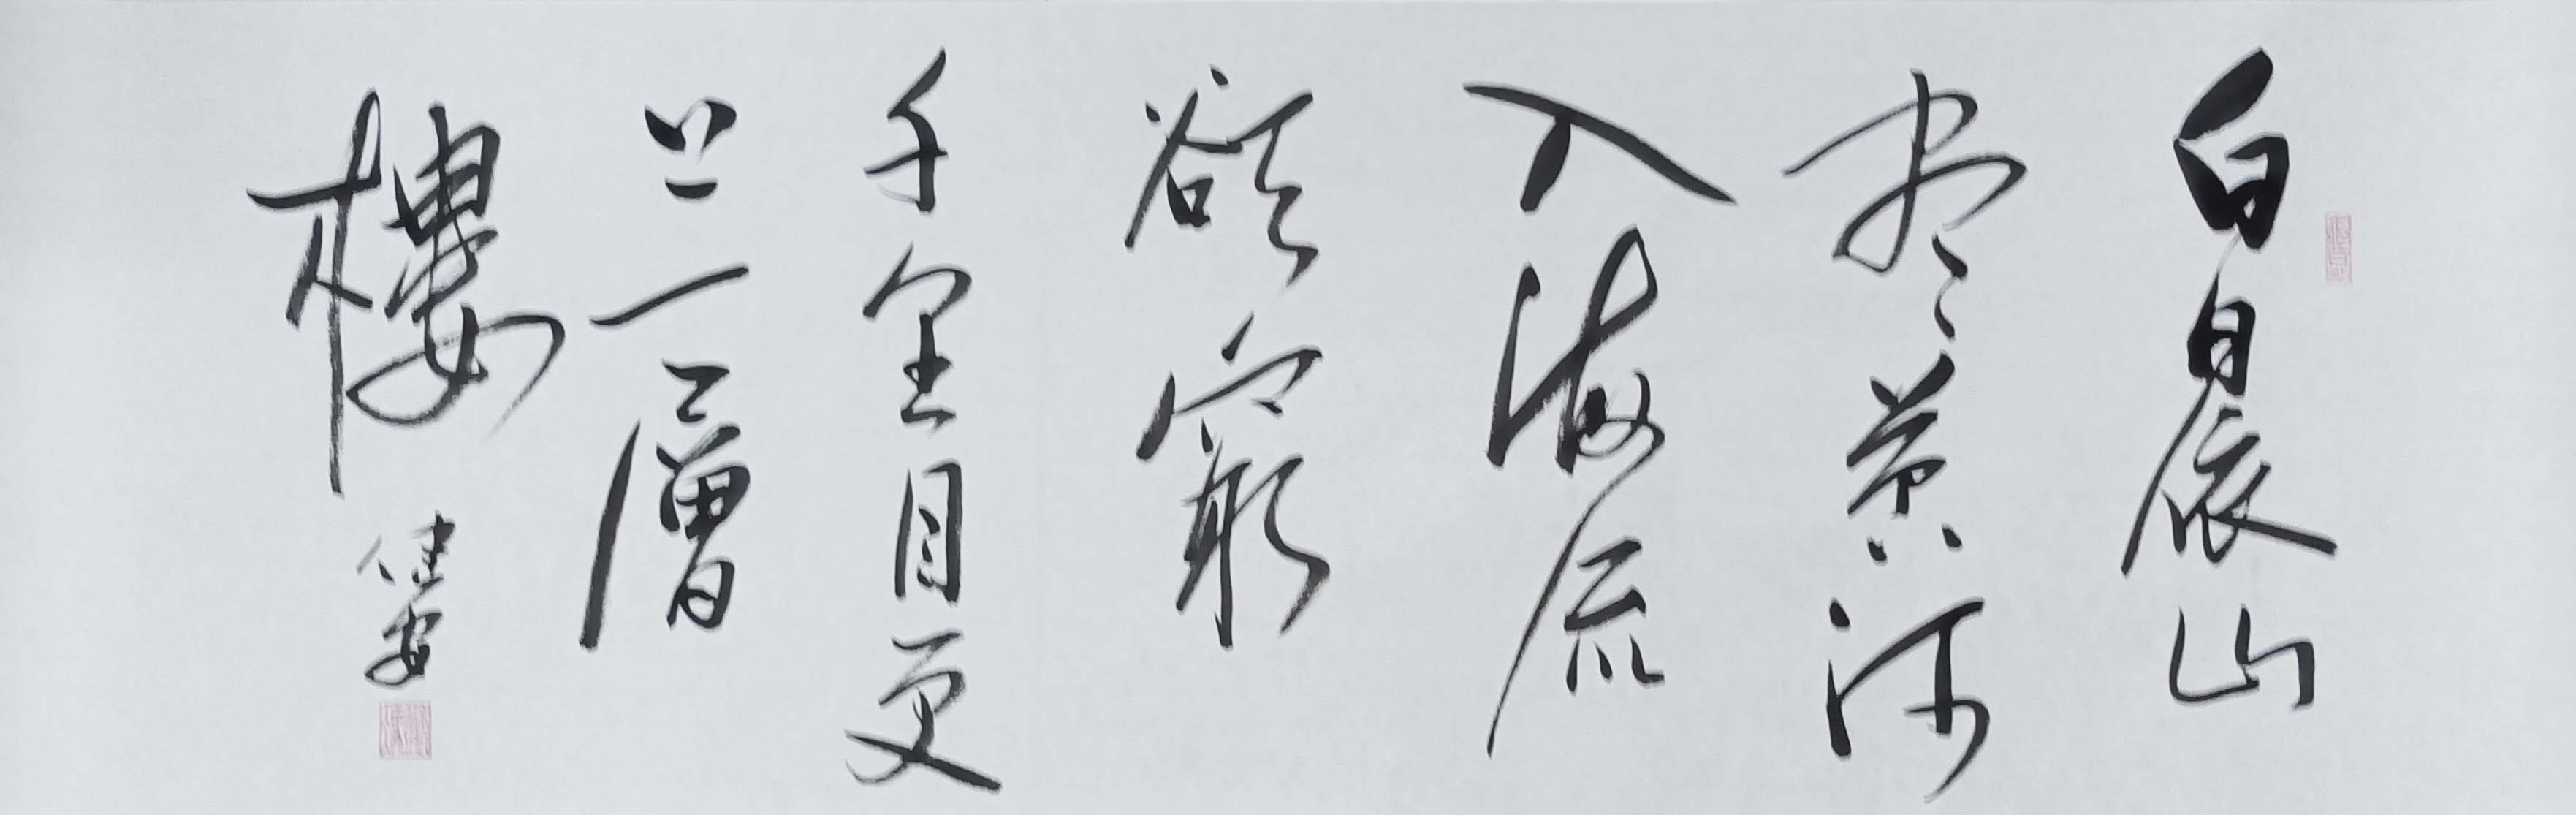 白日依山
尽黄河
入海流
欲窮
千里目更
上一層
樓
健安